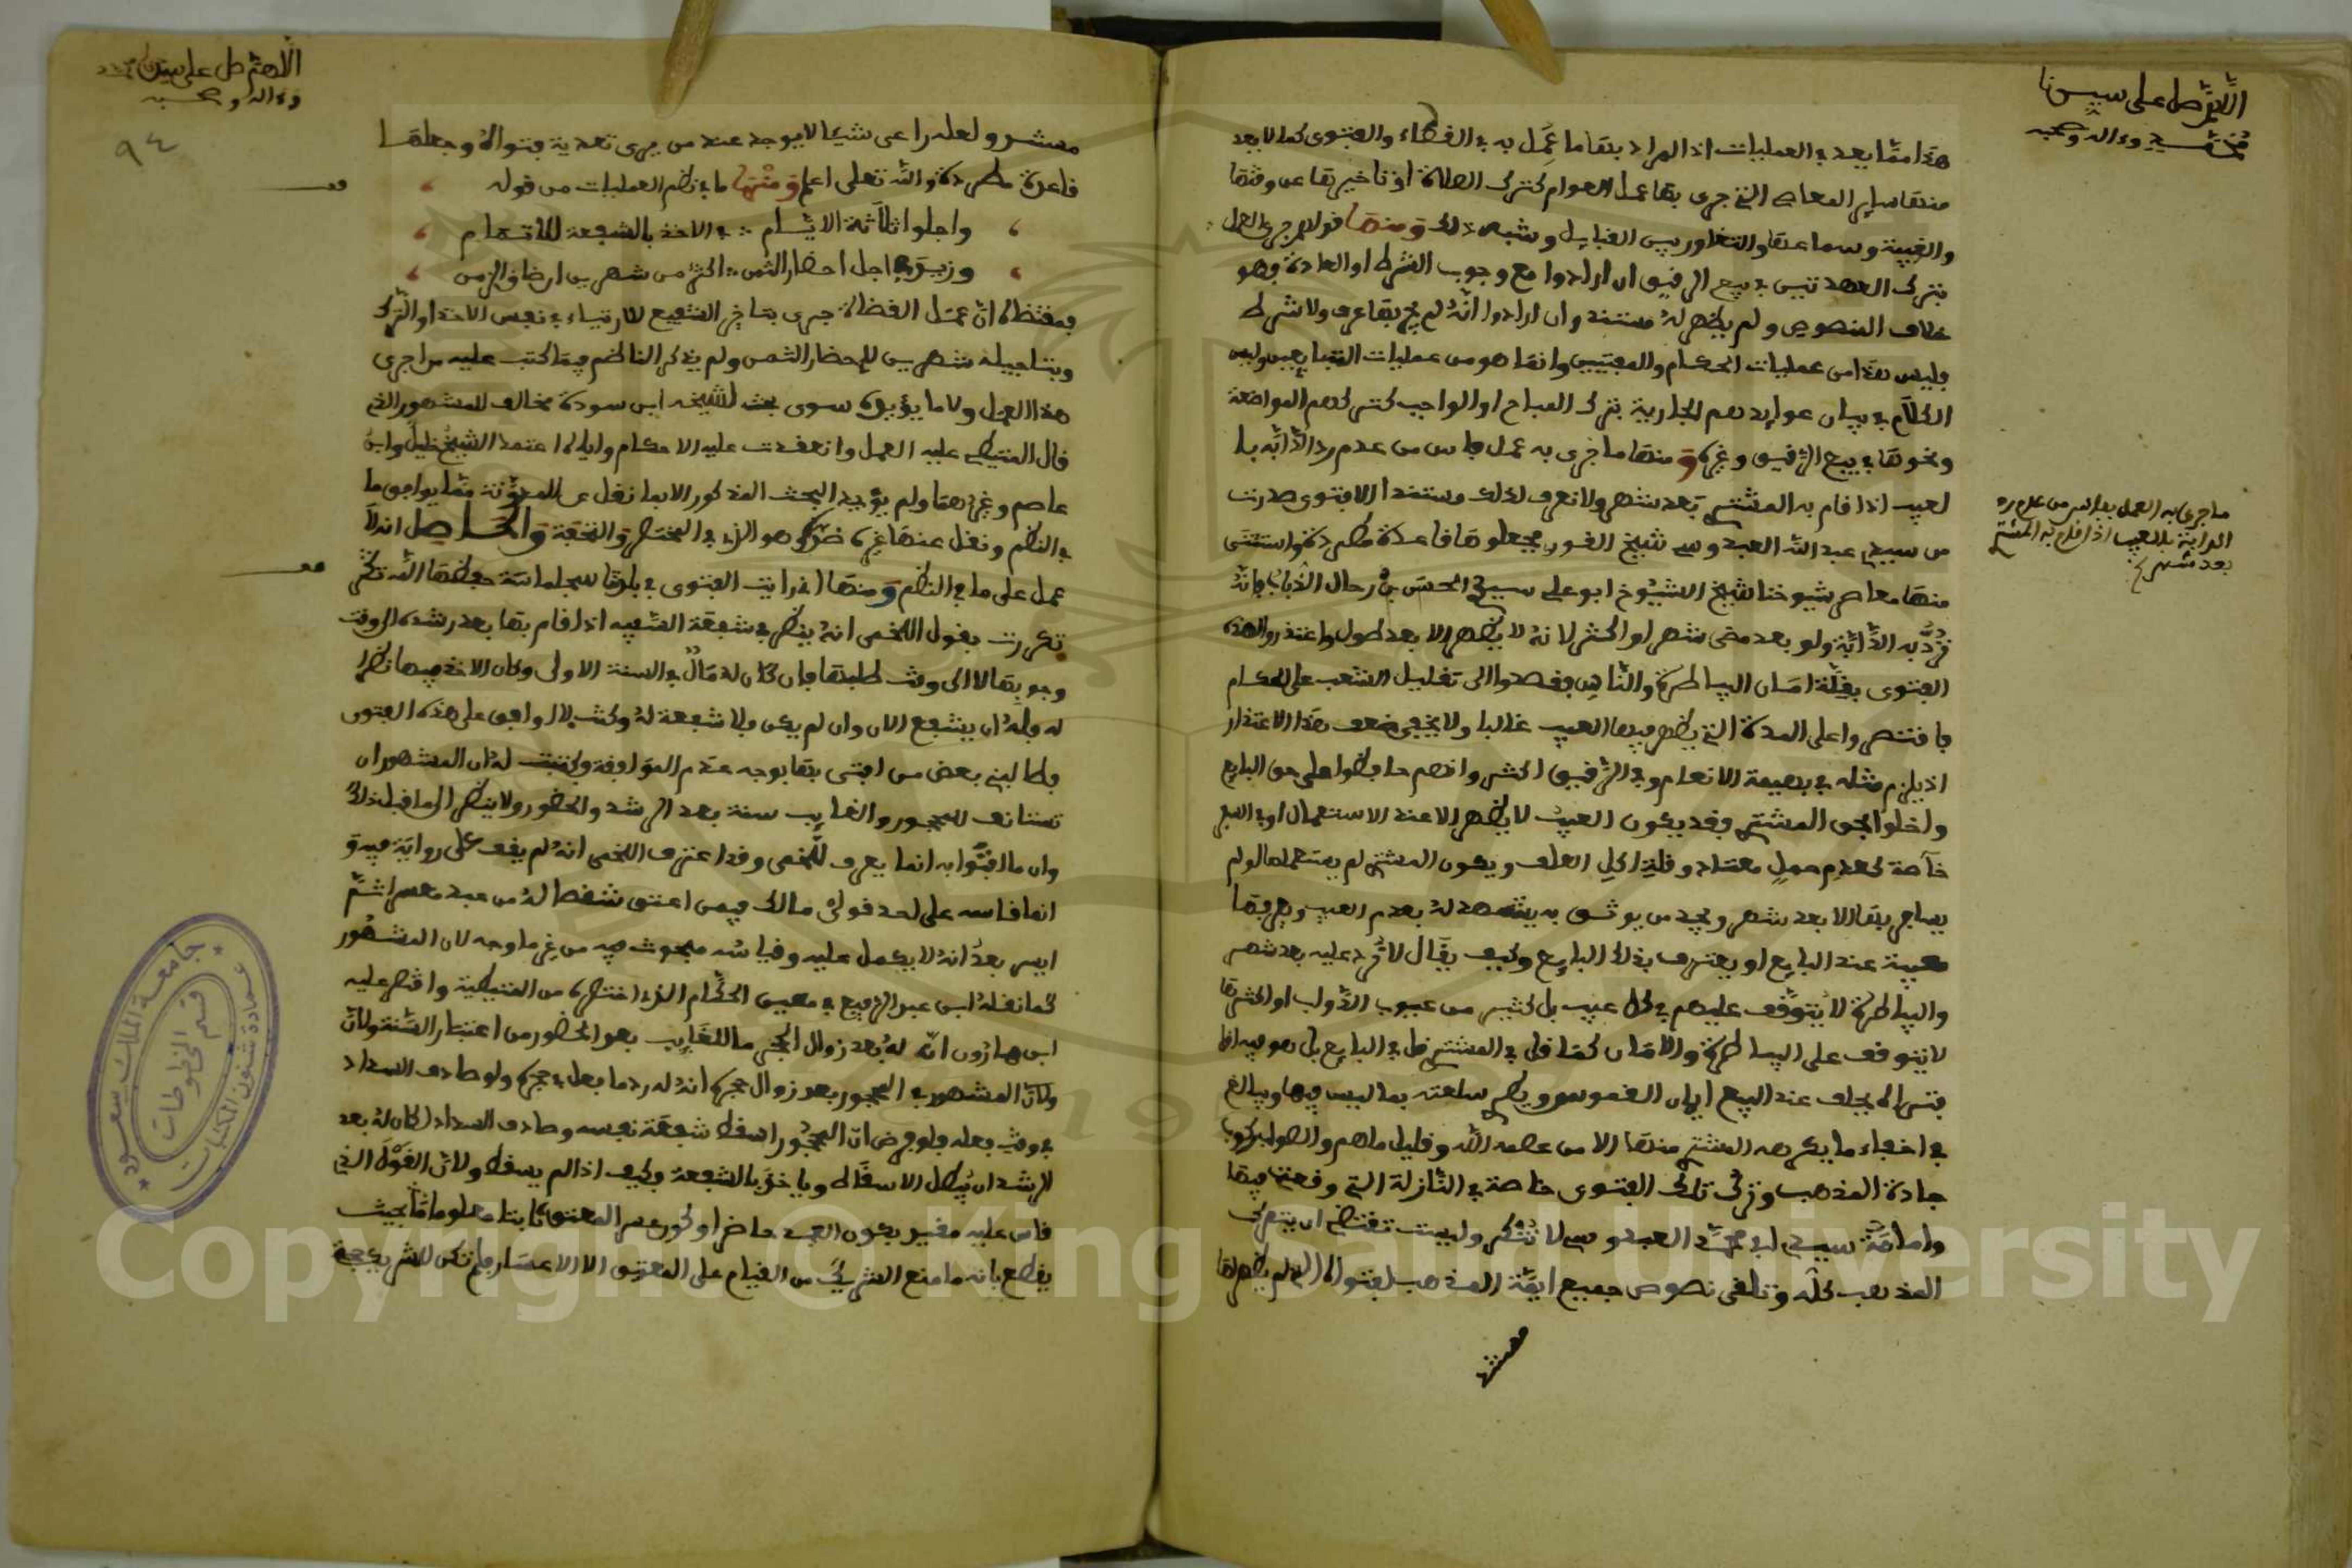 اللهم صل على سيدنا
محمد وءاله وصحبه
هذا مما يعد في العمليات اذ المراد بها ما عمل به في القضاء والفتوى كما لا يعد
منها ساير المعاصي التي جرى بها عمل العوام كترك الصلاة او تاخيرها عن وقتها
والغيبة وسماعها والتغاور بين القبايل وشبه ذلك ومنها قولهم جرى العمل
بترك العهدتين في بيع الرقيق ان ارادوا مع وجوب الشرط او العادة فهو
خلاف النصوص ولم يظهر له مستند وان ارادوا انه لم يجر بها عرف ولا شرط
فليس هذا من عمليات الحكام والمفتيين وانما هو من عمليات المتبايعين وليس
الكلام في بيان عوايدهم الجارية بترك المباح او الواجب كتركهم المواضعة
ونحوها في بيع الرقيق وغيره ومنها ما جرى به عمل فاس من عدم رد الدابة با
لعيب اذا قام به المشتري بعد شهر ولا نعرف لذلك مستندا الا فتوى صدرت
من سيدي عبد الله العبدوسي شيخ القوري فجعلوها قاعدة مطردة واستثنى
منها معاصر شيوخنا شيخ الشيوخ ابو علي سيدي الحسن بن رحال الذباب فانه
ترد به الدابة ولو بعد مضي شهر او اكثر لانه لا يظهر الا بعد طول واعتذروا لهذه
الفتوى بقلة امان البياطرة والناس فقصدوا الى تقليل الشعب على الحكام
فاقتصروا على المدة التي يظهر فيها العيب غالبا ولا يخفى ضعف هذا الاعتذار
اذ يلزم مثله في بهيمة الانعام وفي الرقيق اكثر وانهم حافظوا على حق البايع
واخلوا بحق المشتري وقد يكون العيب لا يظهر الا عند الاستعمال او في السفر
خاصة كعدم حمل معتاد وقلة اكل العلف ويكون المشتري لم يستعملها او لم
يسافر بها الا بعد شهر ويجد من يوثق به يشهد له بقدم العيب ويعرفها
معيبة عند البايع او يعترف بذلك البايع وكيف يقال لا ترد عليه بعد شهر
والبياطرة لا يتوقف عليهم في كل عيب بل كثير من عيوب الدواب او اكثرها
لا يتوقف على البياطرة والامان كما قل في المشتري قل في البايع بل هو فيه اقل
فتراه يحلف عند البيع ايمان الغموس ويطري سلعته بما ليس فيها ويبالغ
في اخفاء ما يكرهه المشتري منها الا من عصمه الله وقليل ما هم والصواب ركوب
جادة المذهب وترك تلك الفتوى خاصة في النازلة التي وقعت فيها
وامامة سيدي ابي محمد العبدوسي لا تنكر وليست تقتضي ان يترك
المذهب كله وتلغى نصوص جميع ايمة المذهب لفتواه التي لم يظهر لها
مستند
ما جرى به العمل بفاس من عدم رد
الدابة بالعيب اذا قام به المشتري
بعد شهر
اللهم صل على سيدنا محمد
وءاله وصحبه
٩٤
مستند ولعله راعى شيئا لا يوجد عند من يرى تعدية فتواه وجعلها
قاعدة مطردة والله تعلى اعلم ومنها ما في نظم العمليات من قوله
واجلوا ثلاثة الايام ∴ في الاخذ بالشفعة للاتمام
وزيد في اجل احضار الثمن ∴ اكثر من شهرين ارضا في الزمن
فمقتضاه ان عمل القضاة جرى بتاخير الشفيع للارتياء في نفس الاخذ او الترك
وبتاجيله شهرين لاحضار الثمن ولم يذكر الناظم فيما كتب عليه من اجرى
هذا العمل ولا ما يؤيده سوى بحث لشيخه ابن سودة مخالف للمشهور الذي
قال المتيطي عليه العمل وانعقدت عليه الاحكام واياه اعتمد الشيخ خليل وابن
عاصم وغيرهما ولم يؤيد البحث المذكور الا بما نقل عن المدونة مما يوافق ما
في النظم ونقل عنها غيره ضده وهو الذي في المختصر والتحفة والحاصل انه لا
عمل على ما في النظم ومنها اني رايت الفتوى في بلدنا سجلماسة حفظها الله تكثر
تكررت بقول اللخمي انه ينظر في شفعة السفيه اذا قام بها بعد رشده الى وقت
وجوبها لا الى وقت طلبها فان كان له مال في السنة الاولى وكان الاخذ فيها نظرا
له فله ان يشفع الان وان لم يكن فلا شفعة له وكنت لا اوافق على هذه الفتوى
فطالبني بعض من افتى بها بوجه عدم الموافقة وكتبت له ان المشهور ان
تستانف للمحجور والغايب سنة بعد الرشد والحضور ولا ينظر الى ما قبل ذلك
وان ما افتوا به انما يعرف للخمي وقد اعترف اللخمي انه لم يقف على رواية فيه و
انما قاسه على احد قولي مالك فيمن اعتق شقصا له من عبد معسرا ثم
ايسر بعد انه لا يكمل عليه وقياسه مبحوث فيه من غير ما وجه لان المشهور
كما نقله ابن عبد الرفيع في معين الحكام الذي اختصره من المتيطية واقتصر عليه
ابن هارون ان له بعد زوال الحجر ما للغايب بعد الحضور من اعتبار السنة ولان
ولان المشهور في المحجور بعد زوال حجره انه له رد ما فعل في حجره ولو صادف السداد
في وقت فعله فلو فرض ان المحجور اسقط شفعة نفسه وصادف السداد لكان له بعد
الرشد ان يبطل الاسقاط وياخذ بالشفعة وكيف اذا لم يسقط ولان القول الذي
قاس عليه مقيد بكون العبد حاضرا وكون عسر المعتق كا بنا معلوما بحيث
يقطع بانه ما منع الشريك من القيام على المعتق الا الاعسار فلم تكن للشريك حجة
جامعة الملك سعود
عمادة شئون المكتبات
قسم المخطوطات
Copyright © King Saud University